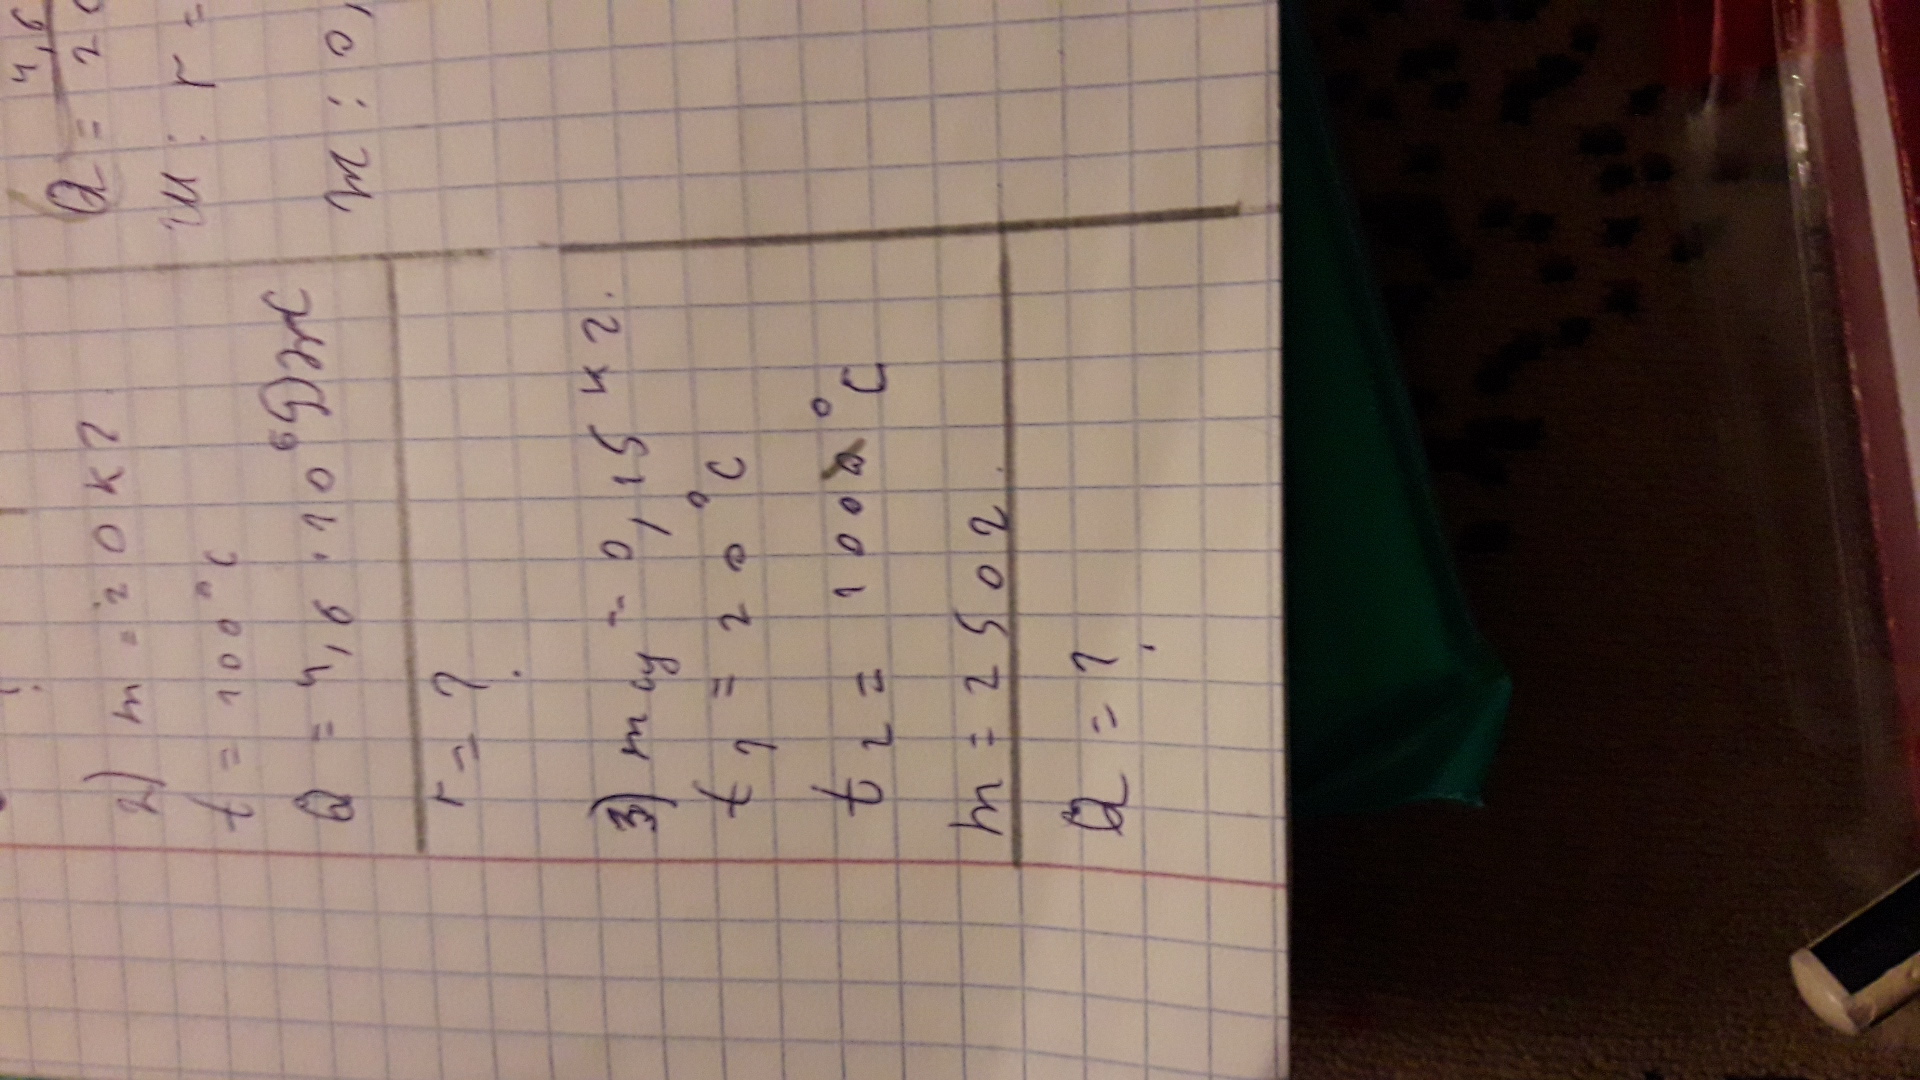 2) m = 20 кг
t = 100°C
Q = 4,6 · 10⁶ Дж
r = ?
3) m су = 0,15 кг.
t₁ = 20°C
t₂ = 100°C
m = 250г.
Q = ?
Q = 4,6
2
и : r =
m : 0,